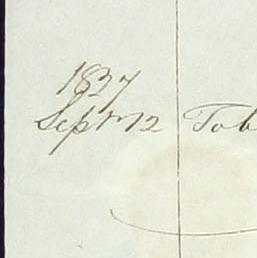 1837
Septr 12 Tob